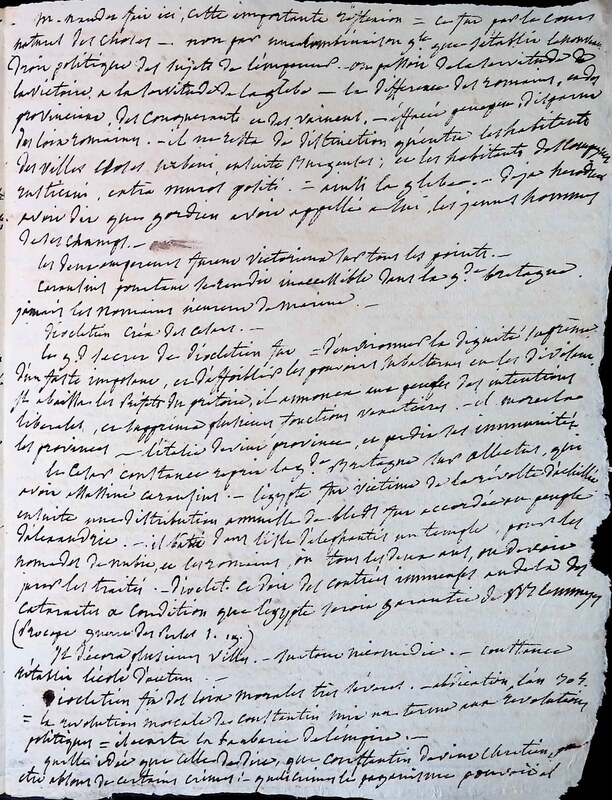 m. naudet fait ici, cette importante réflexion = ce fut par le cours
naturel des choses — non par une combinaison qe. que s'établit le nouveau
droit politique des sujets de l'empereur. on passoit de la servitude de
la victoire, a la servitude de la glebe — la difference des romains, et des
provinciaux, des conquerants et des vaincus, — effacée
des loix romaines. — il ne resta de distinction qu'entre les habitants
des villes closes urbani, ensuite Burgenses; et les habitants des campagnes
rusticani, extra muros positi. = la glebe. — deja herodien
avoit dit que gordien avoit appellé a lui, les jeunes hommes
de ses champs. —
les deux empereurs furent victorieux sur tous les points. —
carausius pourtant se rendit inaccessible dans la gde. bretagne.
jamais les romains n'eurent de marine. —
dioclétien créa des cesars. —
le gd. secret de dioclétien fut = d'environner la dignité suprême
d'un faste imposant, et d'affoiblir les pouvoirs subalternes en les divisant
il abaissa les préfets du prétoire, il annonça aux peuples des intentions
liberales, et supprima plusieurs fonctions — il morcela
les provinces — l'italie devint province, et perdit ses immunités
le cesar constance reprit la gde. Bretagne sur allectus, qui
avoit assassiné carausius. — l'egypte fut victime de la révolte d'achillée
ensuite une distribution annuelle de bled fut accordée au peuple
d'alexandrie. — il batit dans l'isle d'elephantis un temple, pour les
nomades de nubie, et les romains, où tous les deux ans, on devoit
jurer les traités. — dioclet. ceda des contrées immenses au dela des
cataractes a condition que l'egypte seroit garantie de
(Procope guerre des Perses 1. 19.)
Il décora plusieurs villes. — surtout nicomedie. — constance
rétablit l'école d'autun. —
Dioclétien fit des loix morales très séveres. — abdication, l'an 305.
= la revolution morale de constantin mit un terme aux révolutions
politiques = il écarta la barbarie de l'empire. —
quelle idée que celle de dire, que constantin devint chretien, pour
etre absous de certains crimes. — quels crimes le paganisme pouvoit il